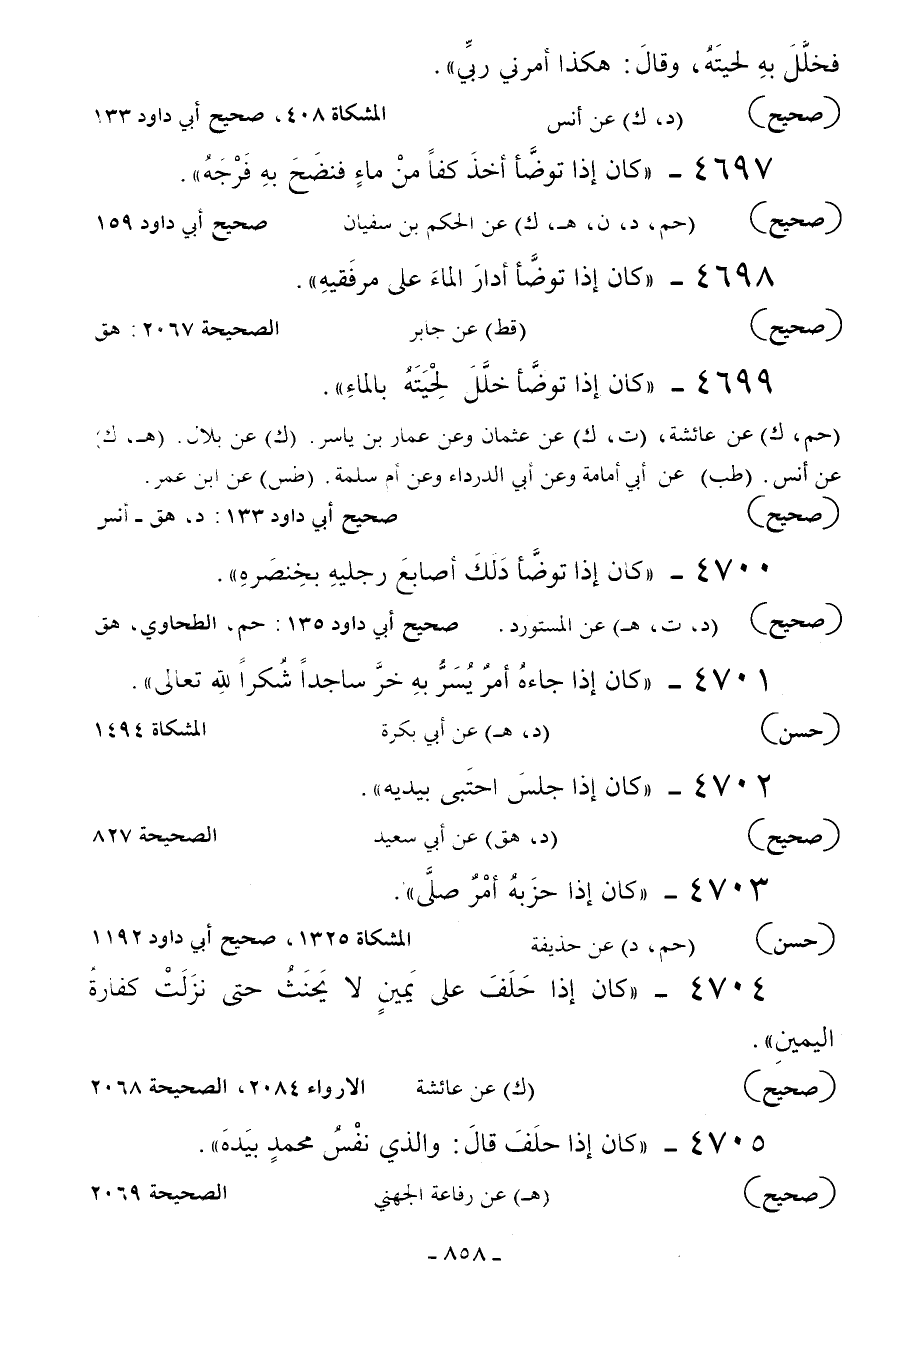 فخلَّلَ بهِ لحيتَهُ، وقالَ: هكذا أمرني ربِّي».
(صحيح) (د، ك) عن أنس المشكاة ٤٠٨، صحيح أبي داود ١٣٣
٤٦٩٧ ـ «كان إذا توضَّأ أخذَ كفاً منْ ماءٍ فنضَحَ بهِ فَرْجَهُ».
(صحيح) (حم، د، ن، هـ، ك) عن الحكم بن سفيان صحيح أبي داود ١٥٩
٤٦٩٨ ـ «كان إذا توضَّأ أدارَ الماءَ على مرفَقيهِ».
(صحيح) (قط) عن جابر الصحيحة ٢٠٦٧: هق
٤٦٩٩ ـ «كان إذا توضَّأ خلَّلَ لِحْيَتَهُ بالماءِ».
(حم، ك) عن عائشة، (ت، ك) عن عثمان وعن عمار بن ياسر. (ك) عن بلال. (هـ، ك)
عن أنس. (طب) عن أبي أمامة وعن أبي الدرداء وعن أم سلمة. (طس) عن ابن عمر.
(صحيح) صحيح أبي داود ١٣٣: د، هق ـ أنس
٤٧٠٠ ـ «كان إذا توضَّأ دَلَكَ أصابعَ رجليهِ بخِنصَرهِ».
(صحيح) (د، ت، هـ) عن المستورد. صحيح أبي داود ١٣٥: حم، الطحاوي، هق
٤٧٠١ ـ «كان إذا جاءهُ أمرٌ يُسَرُّ بهِ خرَّ ساجداً شُكراً للهِ تعالى».
(حسن) (د، هـ) عن أبي بكرة المشكاة ١٤٩٤
٤٧٠٢ ـ «كان إذا جلسَ احتَبى بيديه».
(صحيح) (د، هق) عن أبي سعيد الصحيحة ٨٢٧
٤٧٠٣ ـ «كان إذا حزَبهُ أمْرٌ صلَّى».
(حسن) (حم، د) عن حذيفة المشكاة ١٣٢٥، صحيح أبي داود ١١٩٢
٤٧٠٤ ـ «كان إذا حَلَفَ على يَمينٍ لا يَحنَثُ حتى نزَلَتْ كفارةُ
اليمينِ».
(صحيح) (ك) عن عائشة الارواء ٢٠٨٤، الصحيحة ٢٠٦٨
٤٧٠٥ ـ «كان إذا حلَفَ قالَ: والذي نفْسُ محمدٍ بيَدهَ».
(صحيح) (هـ) عن رفاعة الجهني الصحيحة ٢٠٦٩
ـ ٨٥٨ ـ